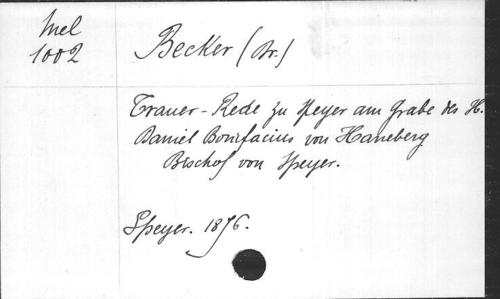 Mel
1002
Becker (Dr.)
Trauer-Rede zu Speyer am Grabe des H.
Daniel Bonifacius von Haneberg
Bischof von Speyer.
Speyer. 1876.